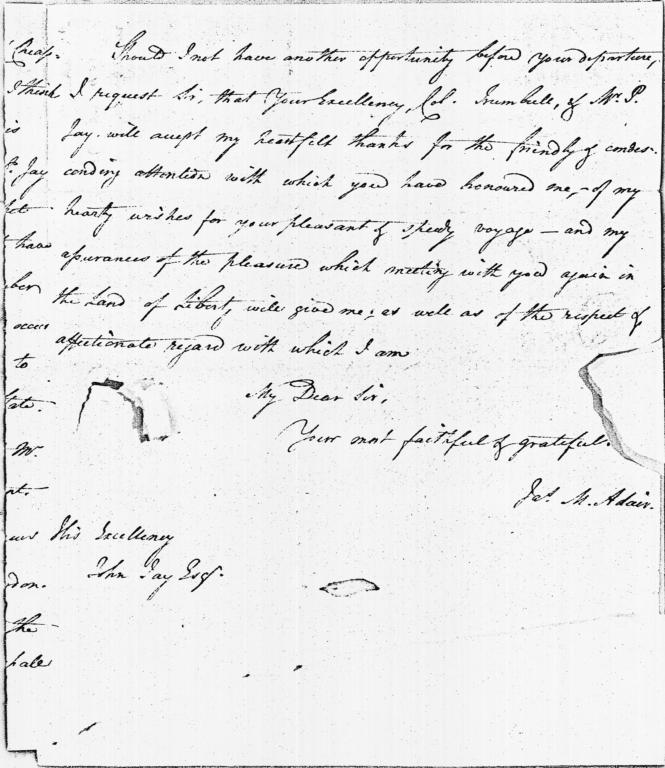 Should I not have another opportunity before your departure,
I request Sir, that Your Excellency, Col. Trumbull, & Mr. P.
Jay will accept my heartfelt thanks for the friendly & condes-
cending attention with which you have honoured me, - of my
hearty wishes for your pleasant & speedy voyage — and my
assurances of the pleasure which meeting with you again in
the Land of Liberty, will give me; as well as of the respect &
affectionate regard with which I am
My Dear Sir,
Your most faithful & grateful.
Jas. M. Adair.
His Excellency
John Jay Esqr.
think
is
Jay
have
ber
occur
to
Mr.
don.
the